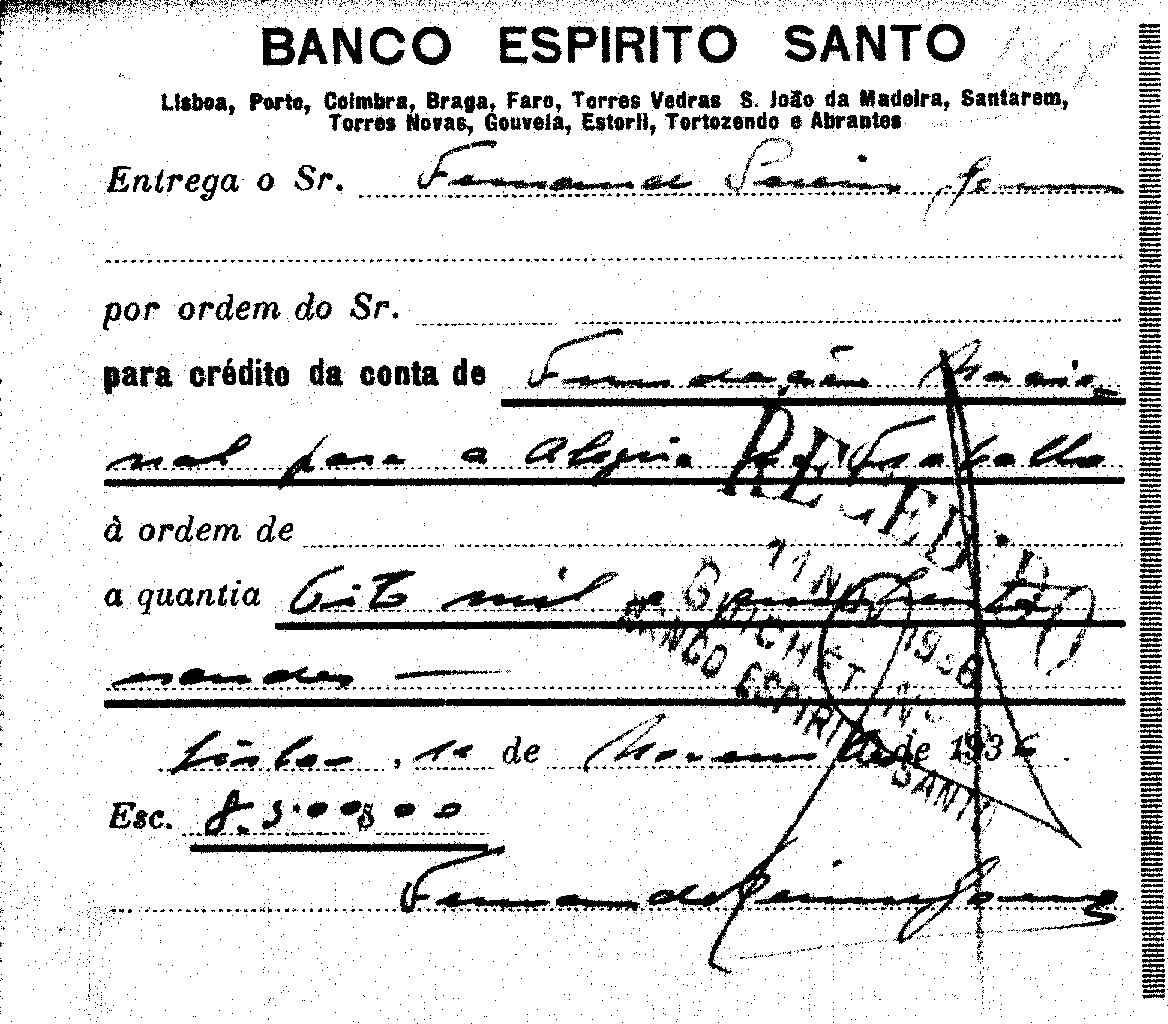 BANCO ESPIRITO SANTO
Lisboa, Porto, Coimbra, Braga, Faro, Torres Vedras S. João da Madeira, Santarem,
Torres Novas, Gouveia, Estoril, Tortozendo e Abrantes
Entrega o Sr. Fernando
por ordem do Sr.
para crédito da conta de Fundação Nacio-
nal para a Alegria no Trabalho
à ordem de
a quantia Oito mil e quinhentos
escudos
Lisboa, 10 de Novembro de 1936
Esc. 8.500$00
Fernando
RECEBIDO
11 NOV 1936
GUICHET Nº
BANCO ESPIRITO SANTO